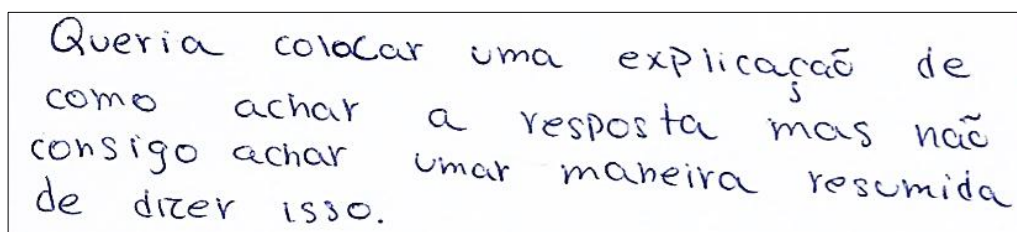 Queria colocar uma explicação de
como achar a resposta mas não
consigo achar umar maneira resumida
de dizer isso.